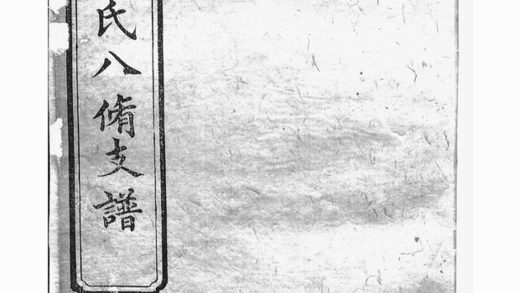 氏八脩支譜